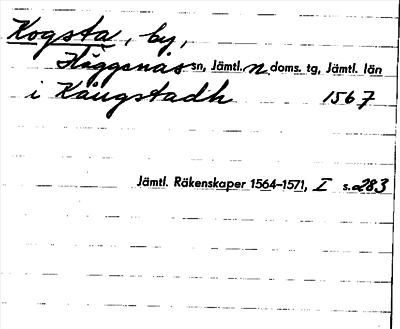 Kogsta, by,
Häggenås sn, Jämtl. n doms. tg, Jämtl. län
i Kångstadh 1567
Jämtl. Räkenskaper 1564–1571, I s. 283